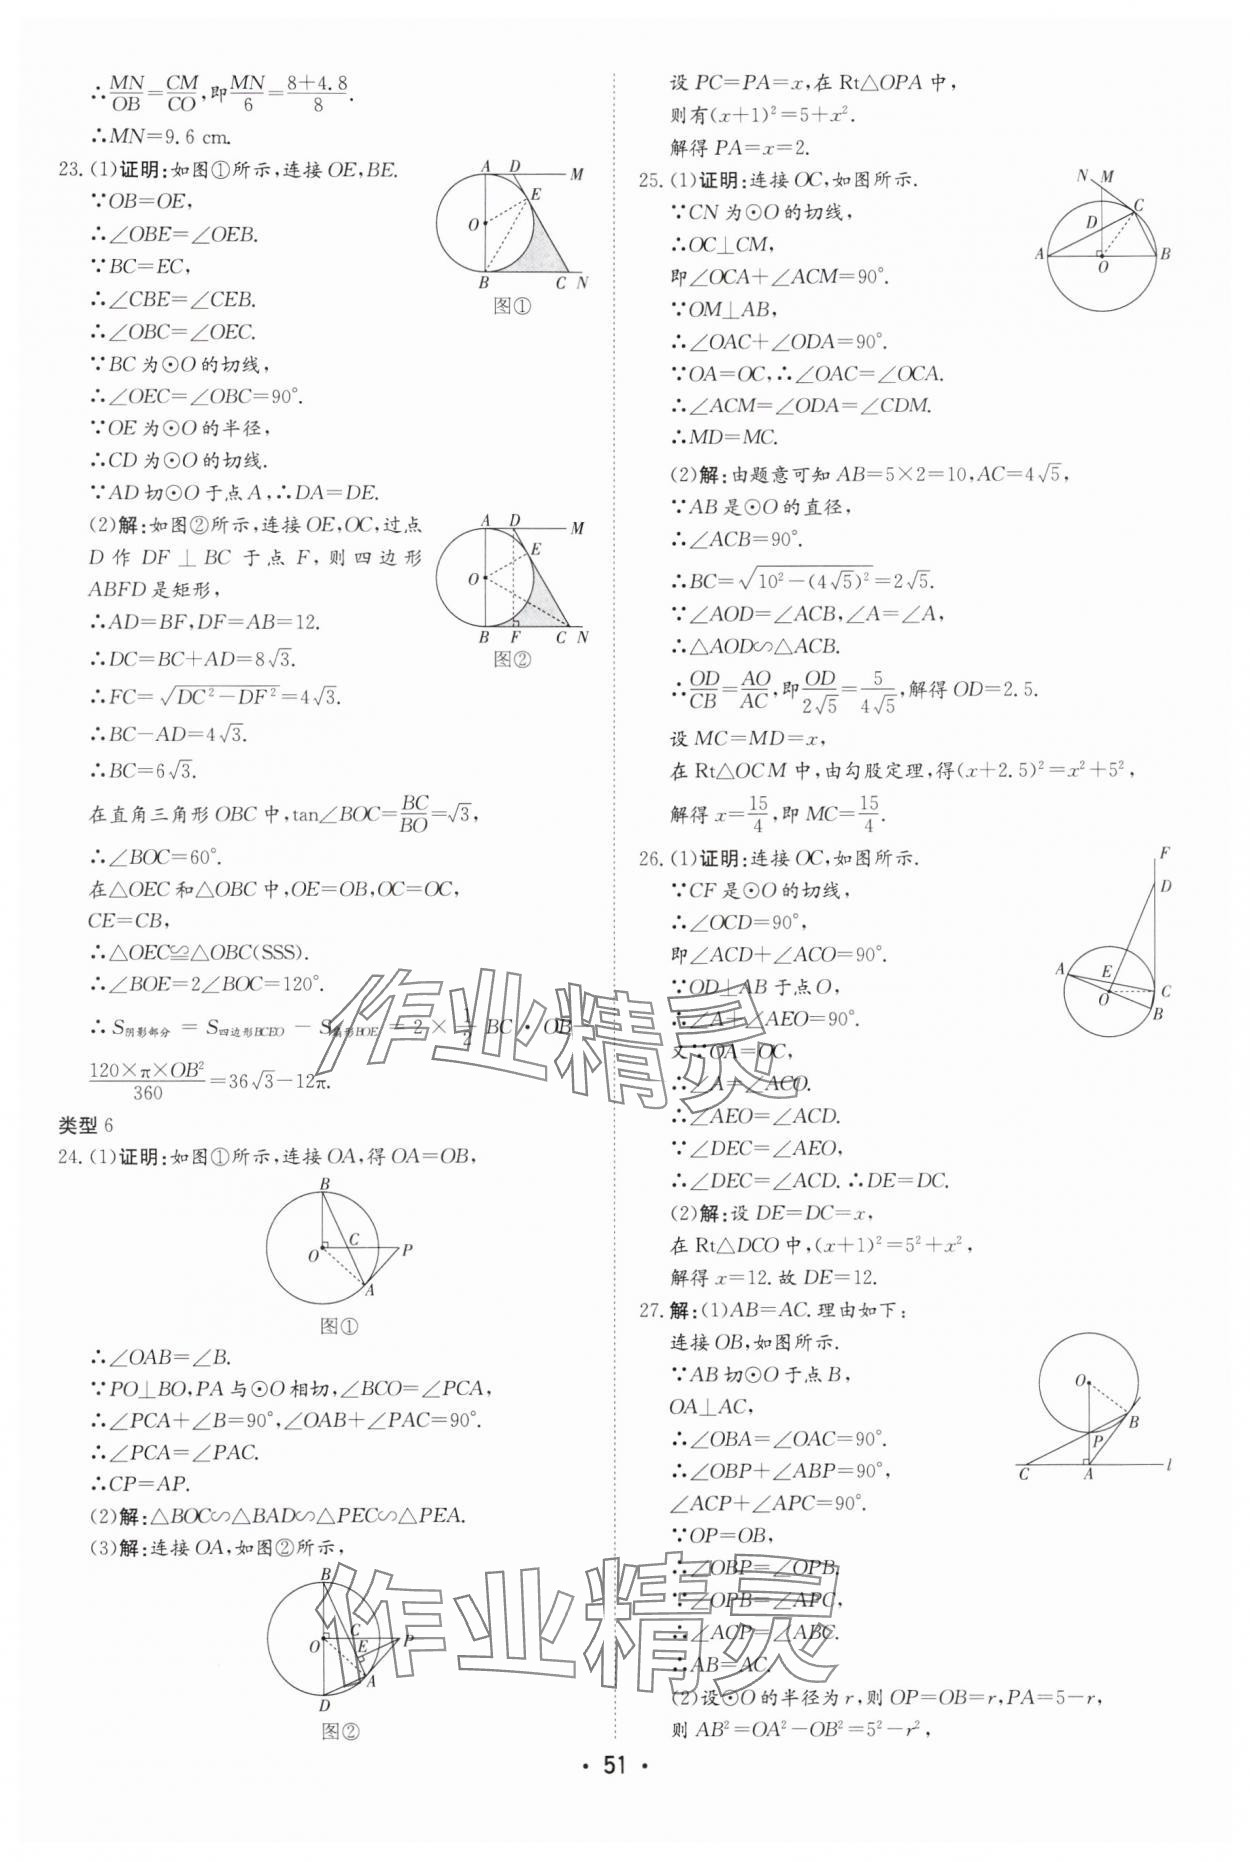 ∴MN/OB=CM/CO,即MN/6=(8+4.8)/8.
∴MN=9.6 cm.
23.(1)证明:如图①所示,连接OE,BE.
∵OB=OE,
∴∠OBE=∠OEB.
∵BC=EC,
∴∠CBE=∠CEB.
∴∠OBC=∠OEC.
∵BC为⊙O的切线,
∴∠OEC=∠OBC=90°.
∵OE为⊙O的半径,
∴CD为⊙O的切线.
∵AD切⊙O于点A,∴DA=DE.
A D M
E
O
B C N
图①
(2)解:如图②所示,连接OE,OC,过点
D作DF⊥BC于点F,则四边形
ABFD是矩形,
∴AD=BF,DF=AB=12.
∴DC=BC+AD=8√3.
∴FC=√(DC²-DF²)=4√3.
∴BC-AD=4√3.
∴BC=6√3.
A D M
E
O
B F C N
图②
在直角三角形OBC中,tan∠BOC=BC/BO=√3,
∴∠BOC=60°.
在△OEC和△OBC中,OE=OB,OC=OC,
CE=CB,
∴△OEC≌△OBC(SSS).
∴∠BOE=2∠BOC=120°.
∴S阴影部分=S四边形BCEO-S扇形BOE=2×1/2 BC·OB
120×π×OB²/360=36√3-12π.
类型6
24.(1)证明:如图①所示,连接OA,得OA=OB,
B
O C P
A
图①
∴∠OAB=∠B.
∵PO⊥BO,PA与⊙O相切,∠BCO=∠PCA,
∴∠PCA+∠B=90°,∠OAB+∠PAC=90°.
∴∠PCA=∠PAC.
∴CP=AP.
(2)解:△BOC∽△BAD∽△PEC∽△PEA.
(3)解:连接OA,如图②所示,
B
O C P
E
A
D
图②
设PC=PA=x,在Rt△OPA中,
则有(x+1)²=5+x².
解得PA=x=2.
25.(1)证明:连接OC,如图所示.
∵CN为⊙O的切线,
∴OC⊥CM,
即∠OCA+∠ACM=90°.
∵OM⊥AB,
∴∠OAC+∠ODA=90°.
∵OA=OC,∴∠OAC=∠OCA.
∴∠ACM=∠ODA=∠CDM.
∴MD=MC.
N M
C
D
A O B
(2)解:由题意可知AB=5×2=10,AC=4√5,
∵AB是⊙O的直径,
∴∠ACB=90°.
∴BC=√(10²-(4√5)²)=2√5.
∵∠AOD=∠ACB,∠A=∠A,
∴△AOD∽△ACB.
∴OD/CB=AO/AC,即OD/2√5=5/4√5,解得OD=2.5.
设MC=MD=x,
在Rt△OCM中,由勾股定理,得(x+2.5)²=x²+5²,
解得x=15/4,即MC=15/4.
26.(1)证明:连接OC,如图所示.
∵CF是⊙O的切线,
∴∠OCD=90°,
即∠ACD+∠ACO=90°.
∵OD⊥AB于点O,
∴∠A+∠AEO=90°.
又∵OA=OC,
∴∠A=∠ACO.
∴∠AEO=∠ACD.
∵∠DEC=∠AEO,
∴∠DEC=∠ACD.∴DE=DC.
F
D
A E
O C
B
(2)解:设DE=DC=x,
在Rt△DCO中,(x+1)²=5²+x²,
解得x=12.故DE=12.
27.解:(1)AB=AC.理由如下:
连接OB,如图所示.
∵AB切⊙O于点B,
OA⊥AC,
∴∠OBA=∠OAC=90°.
∴∠OBP+∠ABP=90°,
∠ACP+∠APC=90°.
∵OP=OB,
∴∠OBP=∠OPB.
∵∠OPB=∠APC,
∴∠ACP=∠ABC.
∴AB=AC.
O
B
P
C A l
(2)设⊙O的半径为r,则OP=OB=r,PA=5-r,
则AB²=OA²-OB²=5²-r²,
作业精灵
作业精灵
·51·